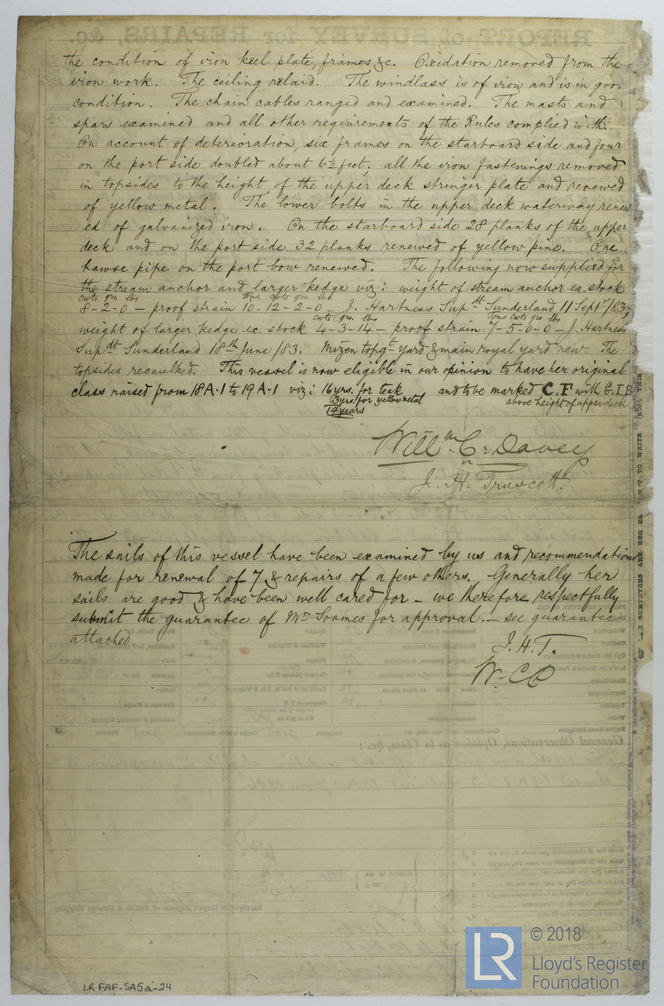 the condition of iron keel plate, frames &c. Oxidation removed from the
iron work. The ceiling relaid. The windlass is of iron and is in good
condition. The chain cables ranged and examined. The masts and
spars examined and all other requirements of the Rules complied with.
On account of deterioration, six frames on the starboard side and four
on the port side doubled about 6½ feet; all the iron fastenings removed
in topsides to the height of the upper deck stringer plate and renewed
of yellow metal. The lower bolts in the upper deck waterway renew
ed of galvanized iron. On the starboard side 28 planks of the upper
deck and on the port side 32 planks renewed of yellow pine. One
hawse pipe on the port bow renewed. The following now supplied for
the stream anchor and larger kedge viz: weight of stream anchor ex. stock
cwts qrs lbs tons cwts qrs lbs
8-2-0 – proof strain 10-12-2-0 – J. Hartness Supdt Sunderland 11 Septr/83;
cwts qrs lbs tons cwts qrs lbs
weight of larger kedge ex stock 4-3-14 – proof strain 7-5-0-0 – J. Hartness
Supdt Sunderland 18th June/83. Mizen topgt yard & main royal yard new. The
topsides recaulked. This vessel is now eligible in our opinion to have her original
class raised from 18A-1 to 19A-1 viz: 16 yrs. for teak and to be marked C.F with G.I.B
3 yrs. for yellow metal above height of upper deck
19 years
Willm C. Davey
J. H. Truscott.
The sails of this vessel have been examined by us and recommendation
made for renewal of 7 & repairs of a few others. Generally her
sails are good & have been well cared for – we therefore respectfully
submit the guarantee of Mr Soames for approval. – see guarantee
attached.
J.H.T.
W. C D
LR-FAF-SA5a-24
LR
© 2018
Lloyd's Register
Foundation